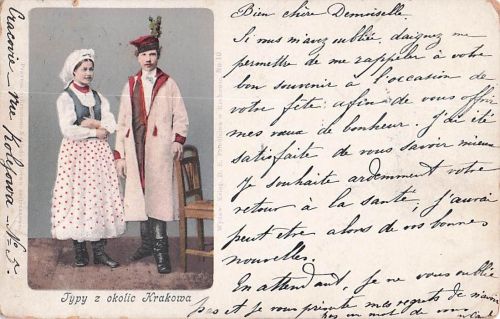 Cracovie, rue Kolejowa No 5.
Typy z okolic Krakowa
Bien chère Demoiselle.
Si vous m'avez oubliée, daignez me
permettre de me rappeler à votre
bon souvenir à l'occasion de
votre fête afin de vous offrir
mes vœux de bonheur. J'ai été
satisfaite de vous savoir mieux
Je souhaite ardemment votre
retour à la santé, j'aurai
peut être alors de vos bonnes
nouvelles.
En attendant, je ne vous oublie
pas et je vous présente mes regrets de n'avoir
pas un mot de vous